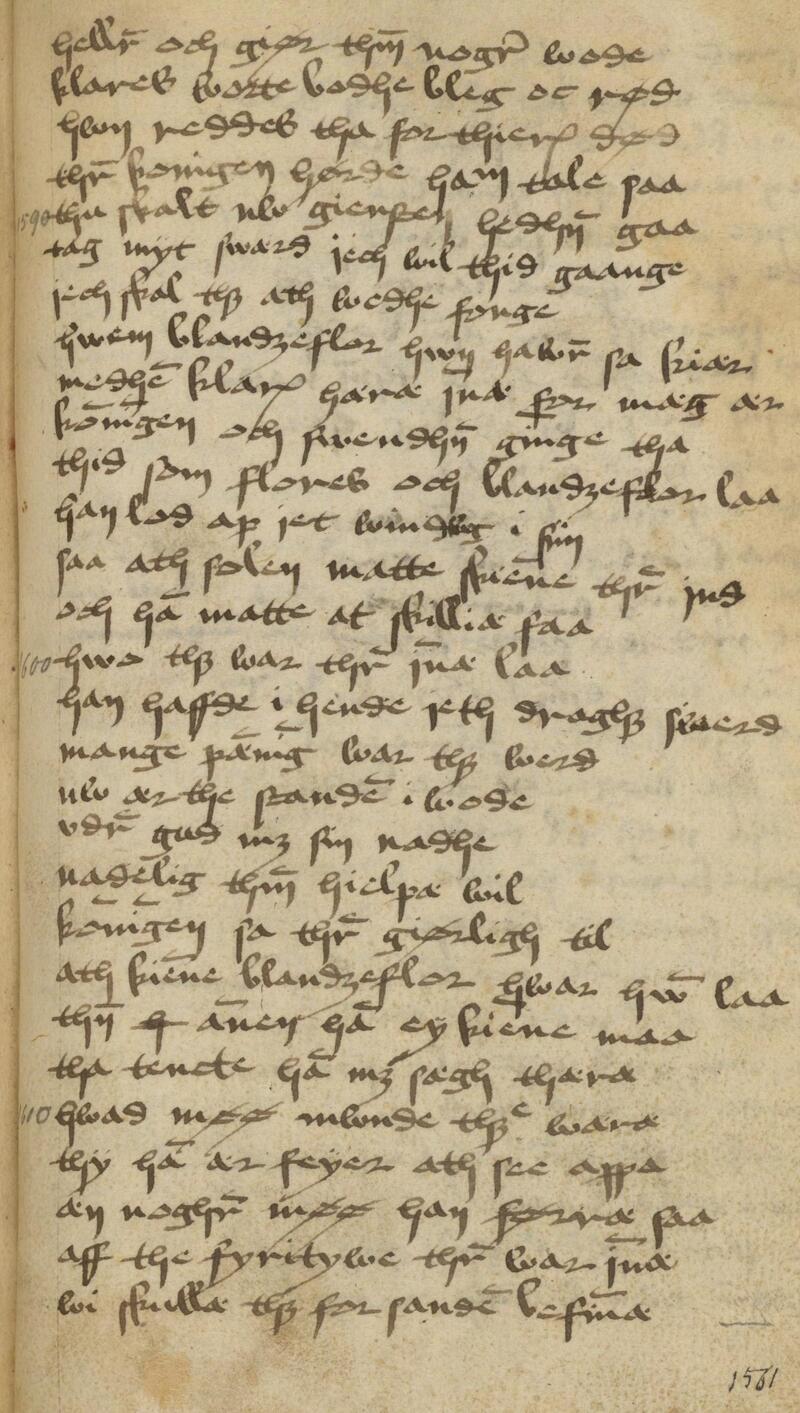 hellr̄ och giør thm̄ nogr̄ wode
klares worte bodhe bleg oc rød
hwn reddes tha for thieris død
thr̄ konigen hørde ham tale saa
1590 thu skalt nw giensten hedhn̄ gaa
tag myt sward jech wil thid gaange
jech skal thꝫ ath wedhe fonge
hwem blandzeflor hwn hawr̄ sa kiær
medhē klaris hæræ jn̄æ for mæg ær
kōnīgen och swendhn̄ ginge tha
thid som flores och blandzeflor laa
han lod ap jet windwg i sin
saa ath solen matte skiēne thr̄ jnd
och hā matte at skilliæ faa
1600 hwo thꝫ war thr̄ jn̄æ laa
han haffde i hende jeth draghꝫ swerd
mange pǣnīg war thꝫ werd
nw ær the standē i wode
vdr̄ gud mꝫ sin nadhe
nadelig thm̄ hielpæ wil
kōnīgen sa thr̄ giørligh til
ath kiēne blandzeflor hwar hw̄ laa
thn̄ ānen hā ey kiēne maa
tha tencte hā mꝫ sægh thæræ
1610 hwad møø mwnde thꝫ wæræ
thy hā ær feyer ath see appa
æn noghr̄ møø han førræ saa
aff the fyritywe thr̄ war jn̄æ
wi skullæ thꝫ for sandē befin̄æ
1561